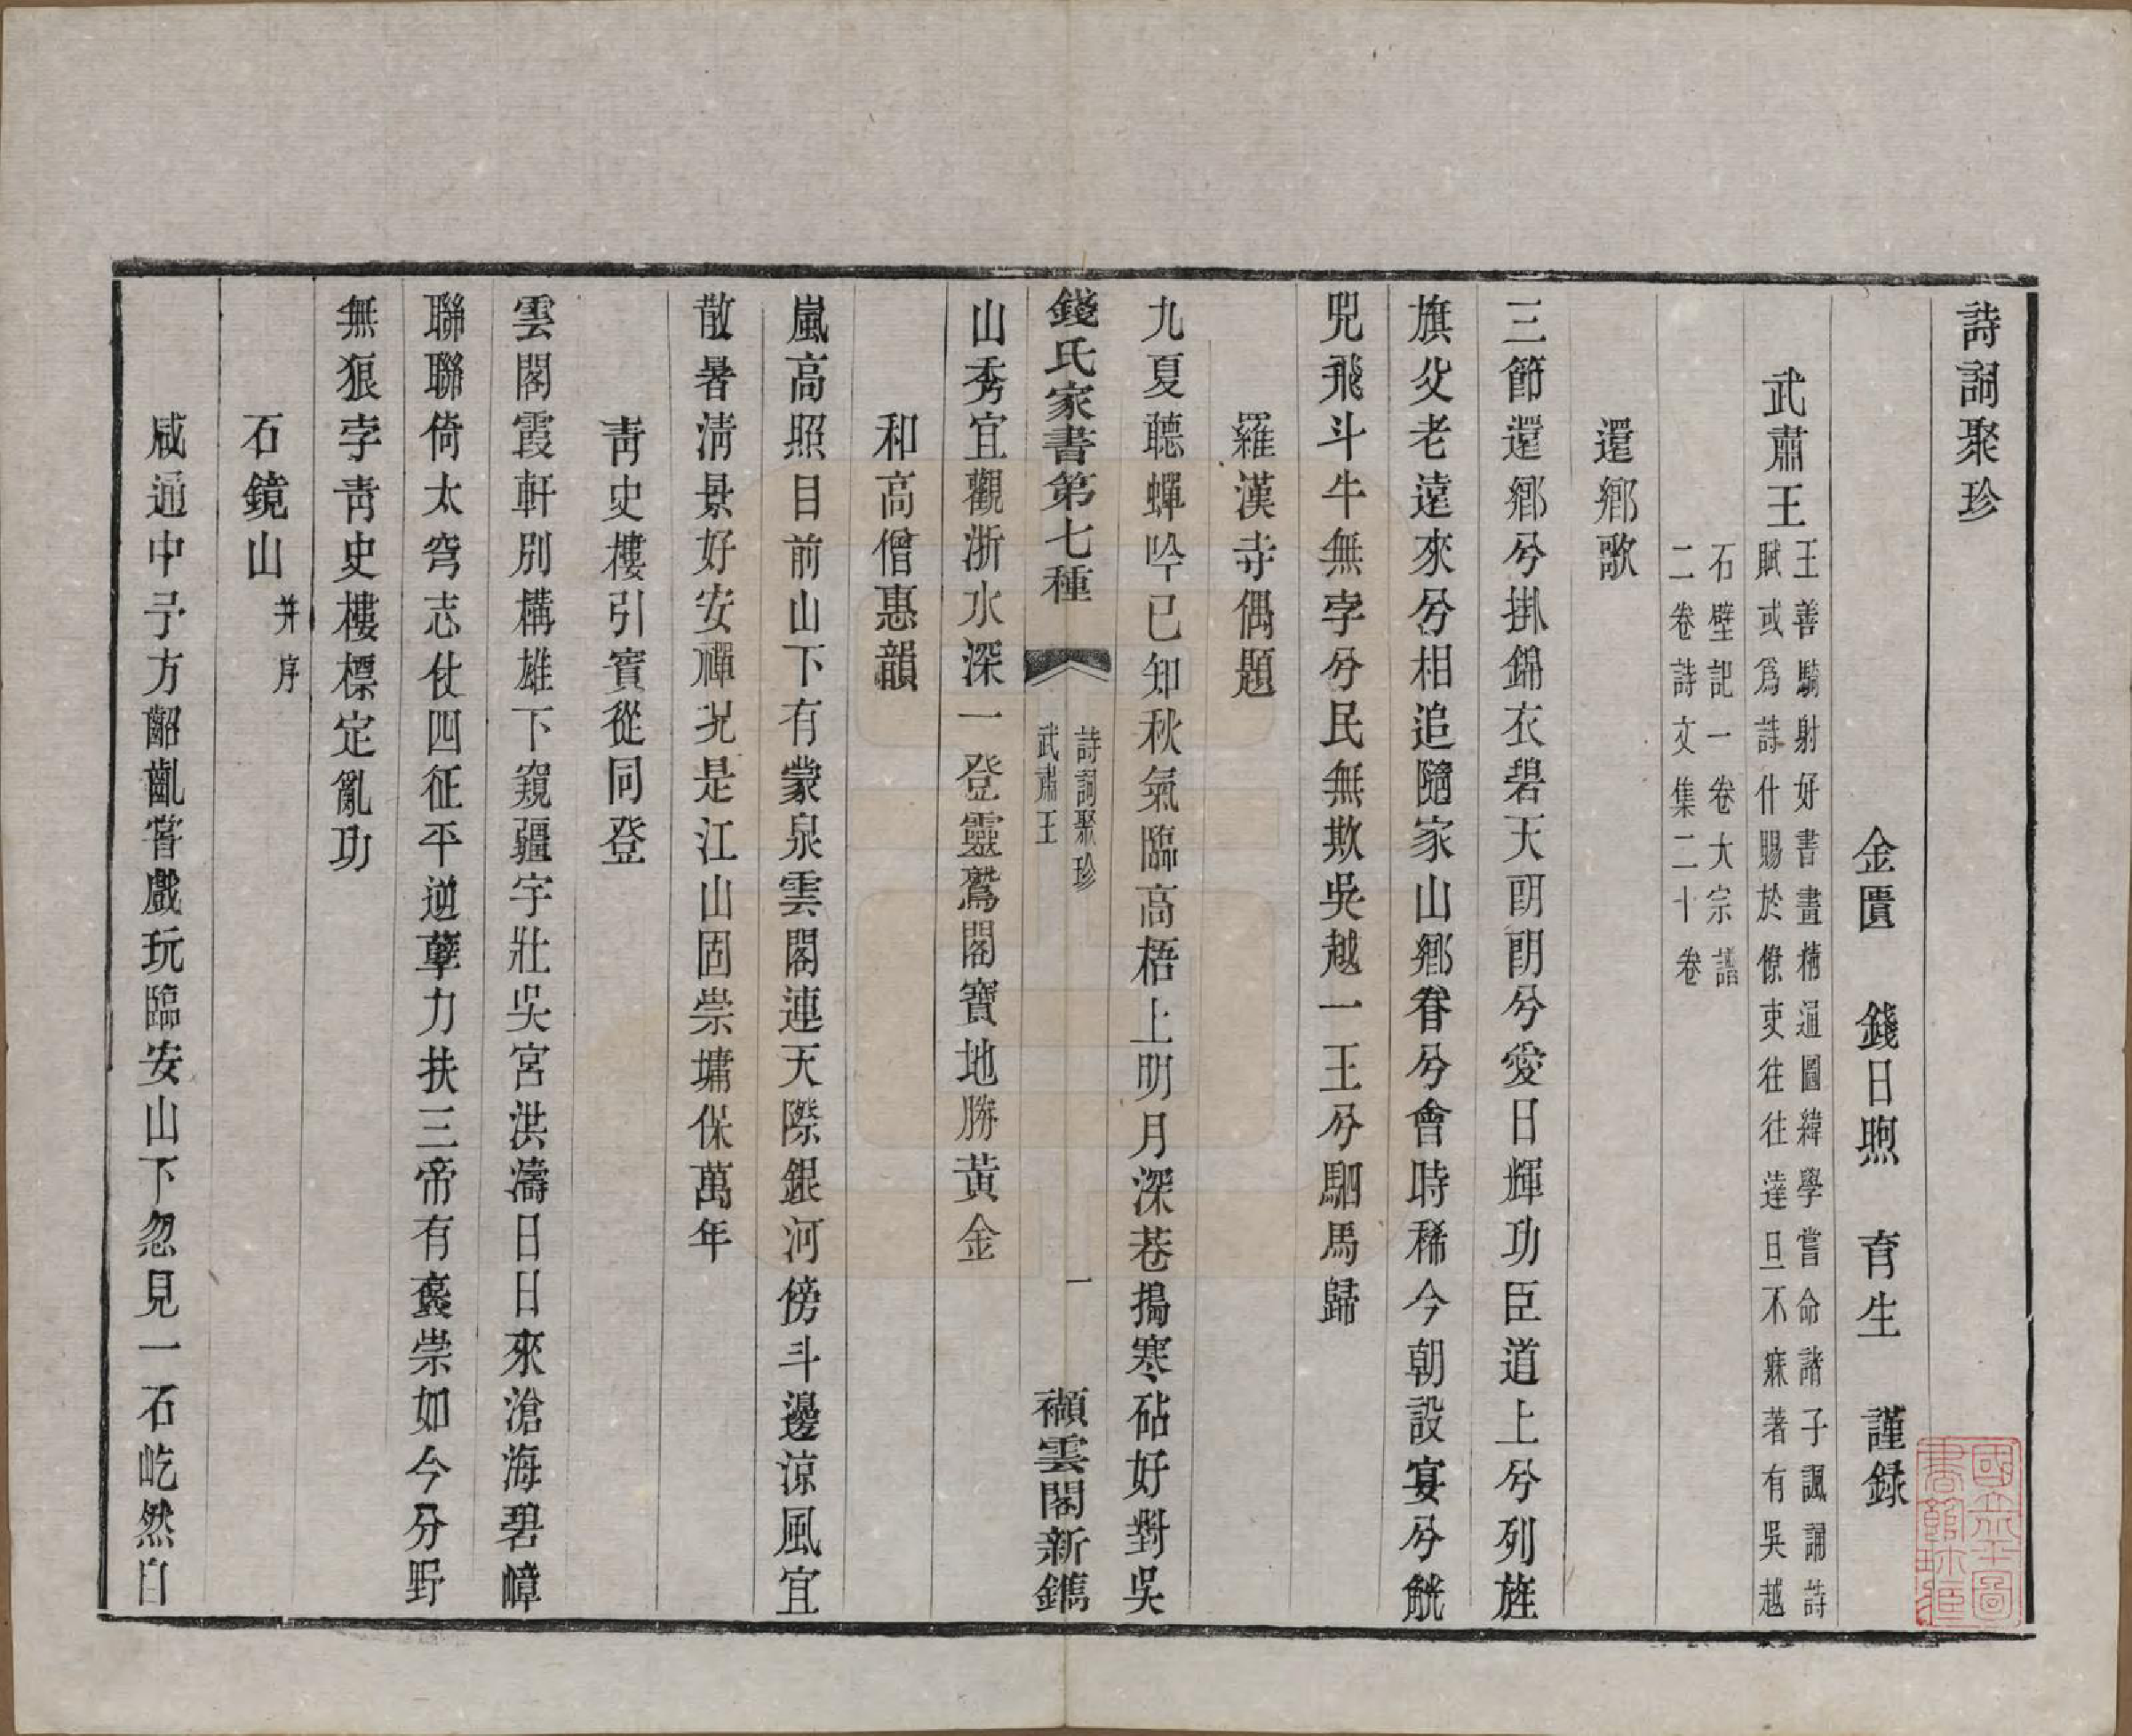 詩詞聚珍
金匱　錢日煦　育生　謹録
武肅王
王善騎射好書畫精通圖緯學嘗命諸子諷誦詩
賦或爲詩什賜於僚吏往往達旦不寐著有吳越
石壁記一卷大宗譜
二卷詩文集二十卷
還鄉歌
三節還鄉兮掛錦衣碧天朗朗兮愛日輝功臣道上兮列旌
旗父老遠來兮相追隨家山鄉眷兮會時稀今朝設宴兮觥
兕飛斗牛無孛兮民無欺吳越一王兮駟馬歸
羅漢寺偶題
九夏聽蟬吟已知秋氣臨高梧上明月深巷搗寒砧好對吳
錢氏家書第七種
詩詞聚珍
武肅王
一
襭雲閣新鐫
山秀宜觀浙水深一登靈鷲閣寶地勝黃金
和高僧惠韻
嵐高照目前山下有蒙泉雲閣連天際銀河傍斗邊涼風宜
散暑清景好安禪況是江山固崇墉保萬年
靑史樓引賓從同登
雲閣霞軒別構雄下窺疆宇壯吳宮洪濤日日來滄海碧嶂
聯聯倚太穹志仗四征平逆孽力扶三帝有褒崇如今分野
無狼孛靑史樓標定亂功
石鏡山
并序
咸通中予方齠齓嘗戲玩臨安山下忽見一石屹然自
國立北平圖書館收藏